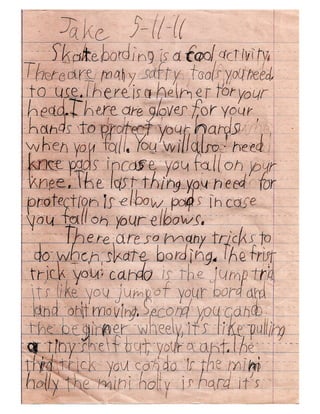 Jake 5-11-11
Skatebording is a cool activity.
There are many safty tools you need
to use. There is a helmet for your
head. There are gloves for your
hands to protect your hands
when you fall. You will also need
knee pads incase you fall on your
knee. The last thing you need for
protection is elbow pads in case
you fall on your elbows.
There are so many tricks to
do when skate bording. The frist
trick you can do is the jump trick
its like you jump of your bord and
land on it moving. Second you can do
the beginner wheely, it's like pulling
a tiny shelf but your a ant. The
third trick you can do is the mini
holly the mini holly is hard it's